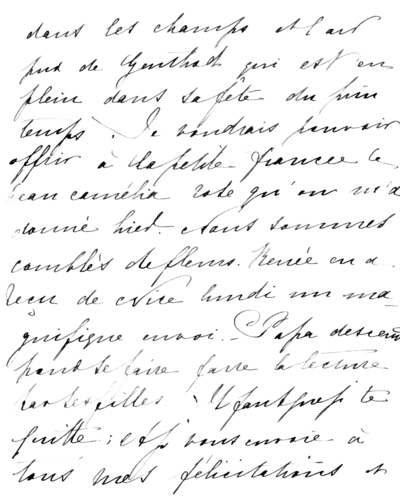 dans les champs et l'air
pur de Genthod qui est en
plein dans sa fête du prin
temps. Je voudrais pouvoir
offrir à la petite fiancée le
beau camélia rose qu'on m'a
donné hier. Nous sommes
comblés de fleurs. Renée en a
reçu de Nice lundi un ma-
gnifique envoi. Papa descend
pour se faire faire la lecture
par ses filles. Il faut que je te
quitte; et je vous envoie à
tous mes félicitations et